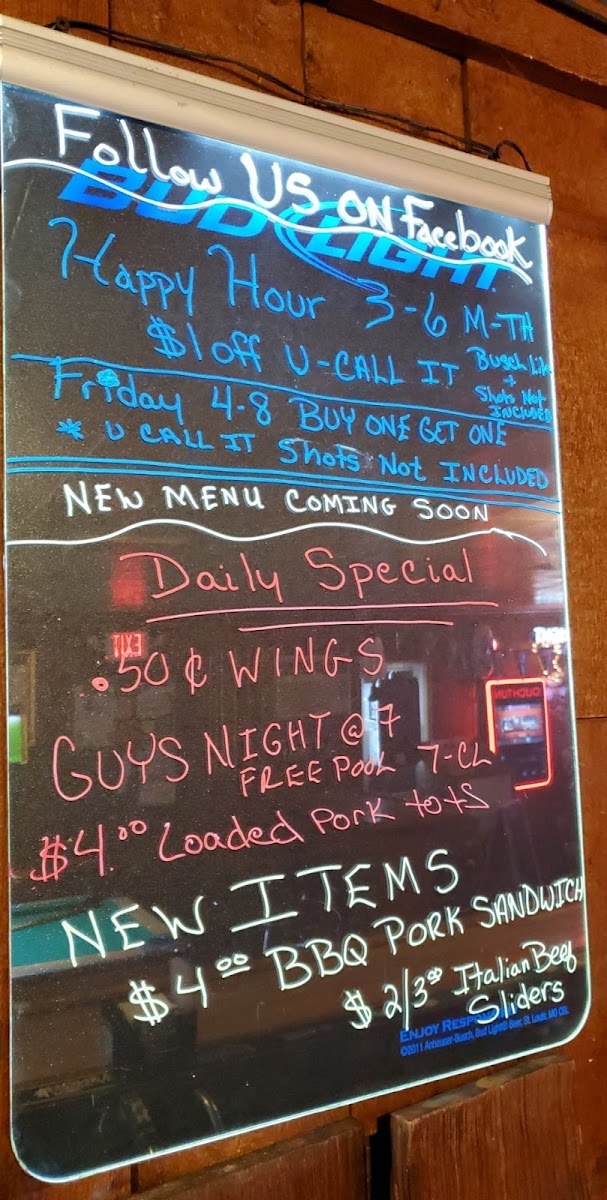 Follow US ON Facebook
BUD LIGHT
Happy Hour 3-6 M-TH
$1 off U-CALL IT Busch Lite
+
Shots Not
INCLUDED
Friday 4-8 BUY ONE GET ONE
* U CALL IT Shots Not INCLUDED
NEW MENU COMING SOON
Daily Special
EXIT
.50¢ WINGS
GUYS NIGHT @ 7
FREE POOL 7-CL
$4.00 Loaded Pork tots
NEW ITEMS
$4.00 BBQ PORK SANDWICH
$2/3.00 Italian Beef
Sliders
ENJOY RESPONS
©2011 Anheuser-Busch, Bud Light® Beer, St. Louis, MO